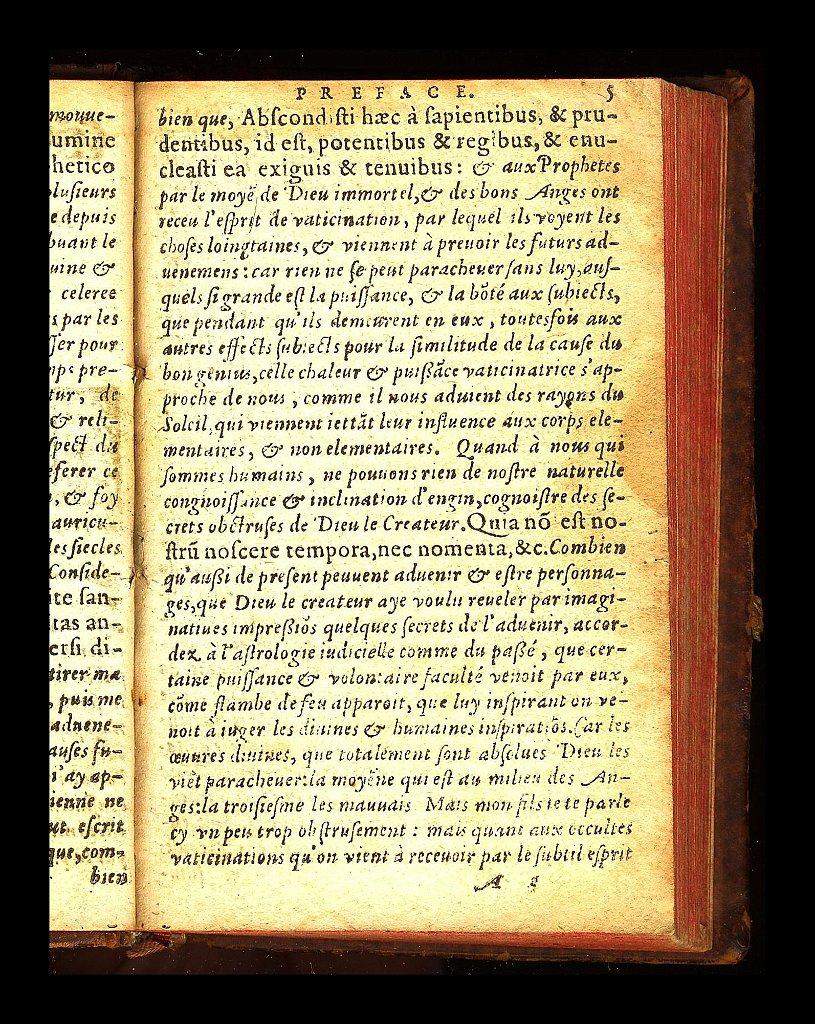 mouue-
umine
hetico
lusieurs
e depuis
buant le
uine &
celeree
s par les
ser pour
mps pre-
tur, de
& reli-
spect du
eferer ce
, & foy
auricu-
les siecles
Conside-
ite san-
tas an-
ersi di-
tirer ma
, puis me
aduene-
auses fu-
i'ay ap-
ienne ne
ut escrit
que, com-
bien
PREFACE. 5
bien que, Abſcondiſti hæc à ſapientibus, & pru-
dentibus, id eſt, potentibus & regibus, & enu-
cleaſti ea exiguis & tenuibus: & aux Prophetes
par le moyẽ de Dieu immortel, & des bons Anges ont
receu l'eſprit de vaticination, par lequel ils voyent les
choſes loingtaines, & viennent à preuoir les futurs ad-
uenemens: car rien ne ſe peut paracheuer ſans luy, auſ-
quels ſi grande eſt la puiſſance, & la bõté aux ſubiects,
que pendant qu'ils demeurent en eux, toutesfois aux
autres effects ſubiects pour la ſimilitude de la cauſe du
bon genius, celle chaleur & puiſsãce vaticinatrice s'ap-
proche de nous, comme il nous aduient des rayons du
Soleil, qui viennent iettãt leur influence aux corps ele-
mentaires, & non elementaires. Quand à nous qui
ſommes humains, ne pouuons rien de noſtre naturelle
congnoiſſance & inclination d'engin, cognoiſtre des ſe-
crets obctruſes de Dieu le Createur. Quia nõ eſt no-
ſtrũ noſcere tempora, nec nomenta, &c. Combien
qu'außi de preſent peuuent aduenir & eſtre perſonna-
ges, que Dieu le createur aye voulu reueler par imagi-
natiues impreßiõs quelques ſecrets de l'aduenir, accor-
dez à l'aſtrologie iudicielle comme du paßé, que cer-
taine puiſſance & volontaire faculté venoit par eux,
cõme flambe de feu apparoit, que luy inſpirant on ve-
noit à iuger les diuines & humaines inſpiratiõs. Car les
œuures diuines, que totalement ſont abſolues Dieu les
viẽt paracheuer: la moyẽne qui eſt au milieu des An-
ges: la troiſieſme les mauuais. Mais mon fils ie te parle
cy vn peu trop obſtruſement: mais quant aux occultes
vaticinations qu'on vient à receuoir par le ſubtil eſprit
A 3